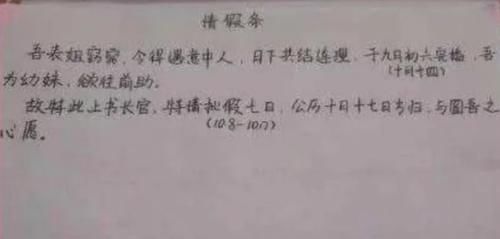 请假条
吾表姐窈窕,今得遇意中人,日下共结连理,于九月初六完婚,吾
(十月十四)
为幼妹,欲往前助。
故特此上书长官,特请批假七日,公历十月十七日方归,与圆吾之
(10.8-10.17)
心愿。